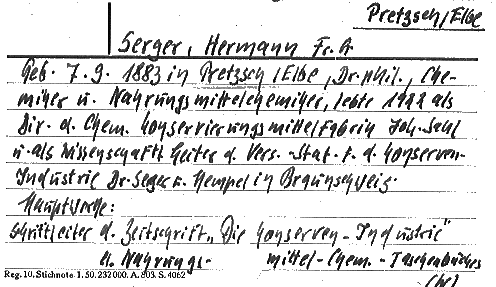 Pretzsch/Elbe
Serger, Hermann Fr. A
Geb. 7. 9. 1883 in Pretzsch/Elbe, Dr. phil., Che-
miker u. Nahrungsmittelchemiker, lebte 1922 als
Dir. d. Chem. Konservierungsmittelfabrik Joh.
u. als Wissenschaftl. Leiter d. Vers.-Stat. f. d. Konserven-
Industrie Dr. Serger u. Hempel in Braunschweig.
Hauptwerke:
Schriftleiter d. Zeitschrift „Die Konserven-Industrie"
u. Nahrungs- mittel-Chem.-Taschenbuches
Reg. 10. Stichnote 1. 50. 232000. A. 803. S. 4062